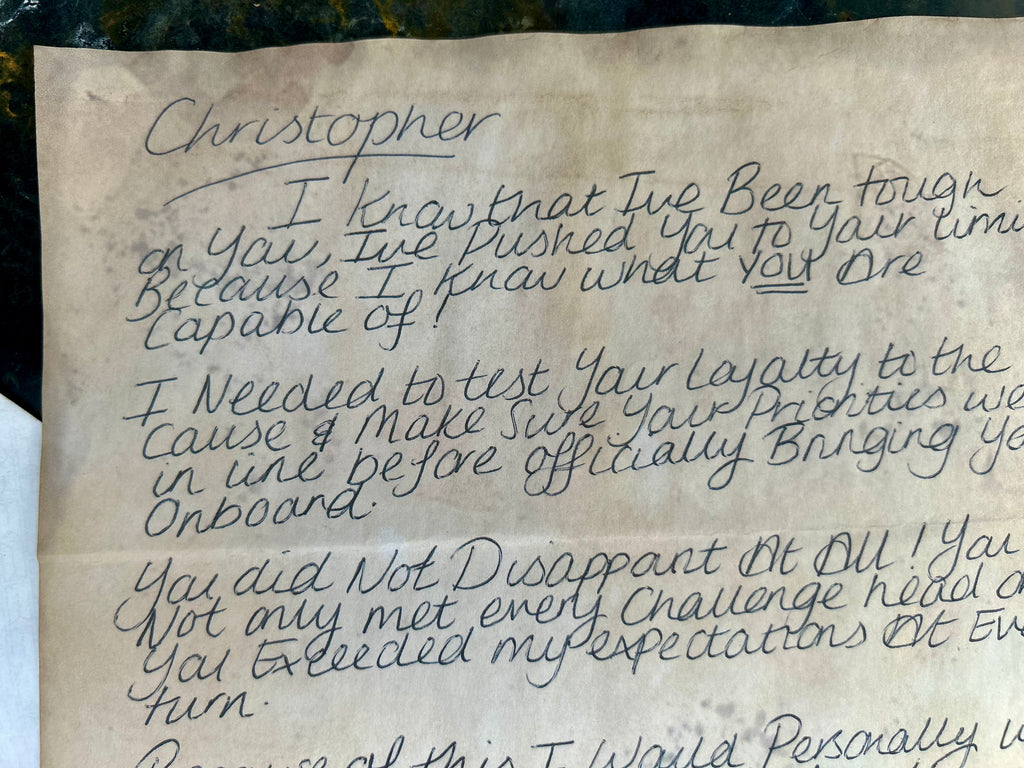 Christopher
I Know that Ive Been tough
on You, Ive Pushed You to Your limi
Because I Know what you Are
Capable of!
I Needed to test Your Loyalty to the
Cause & Make Sure Your Priorities we
in line before officially Bringing Yo
Onboard.
You did Not Disappoint At All! You
Not only met every Challenge head o
You Exceeded my expectations At Ev
turn.
Because of this I Would Personally